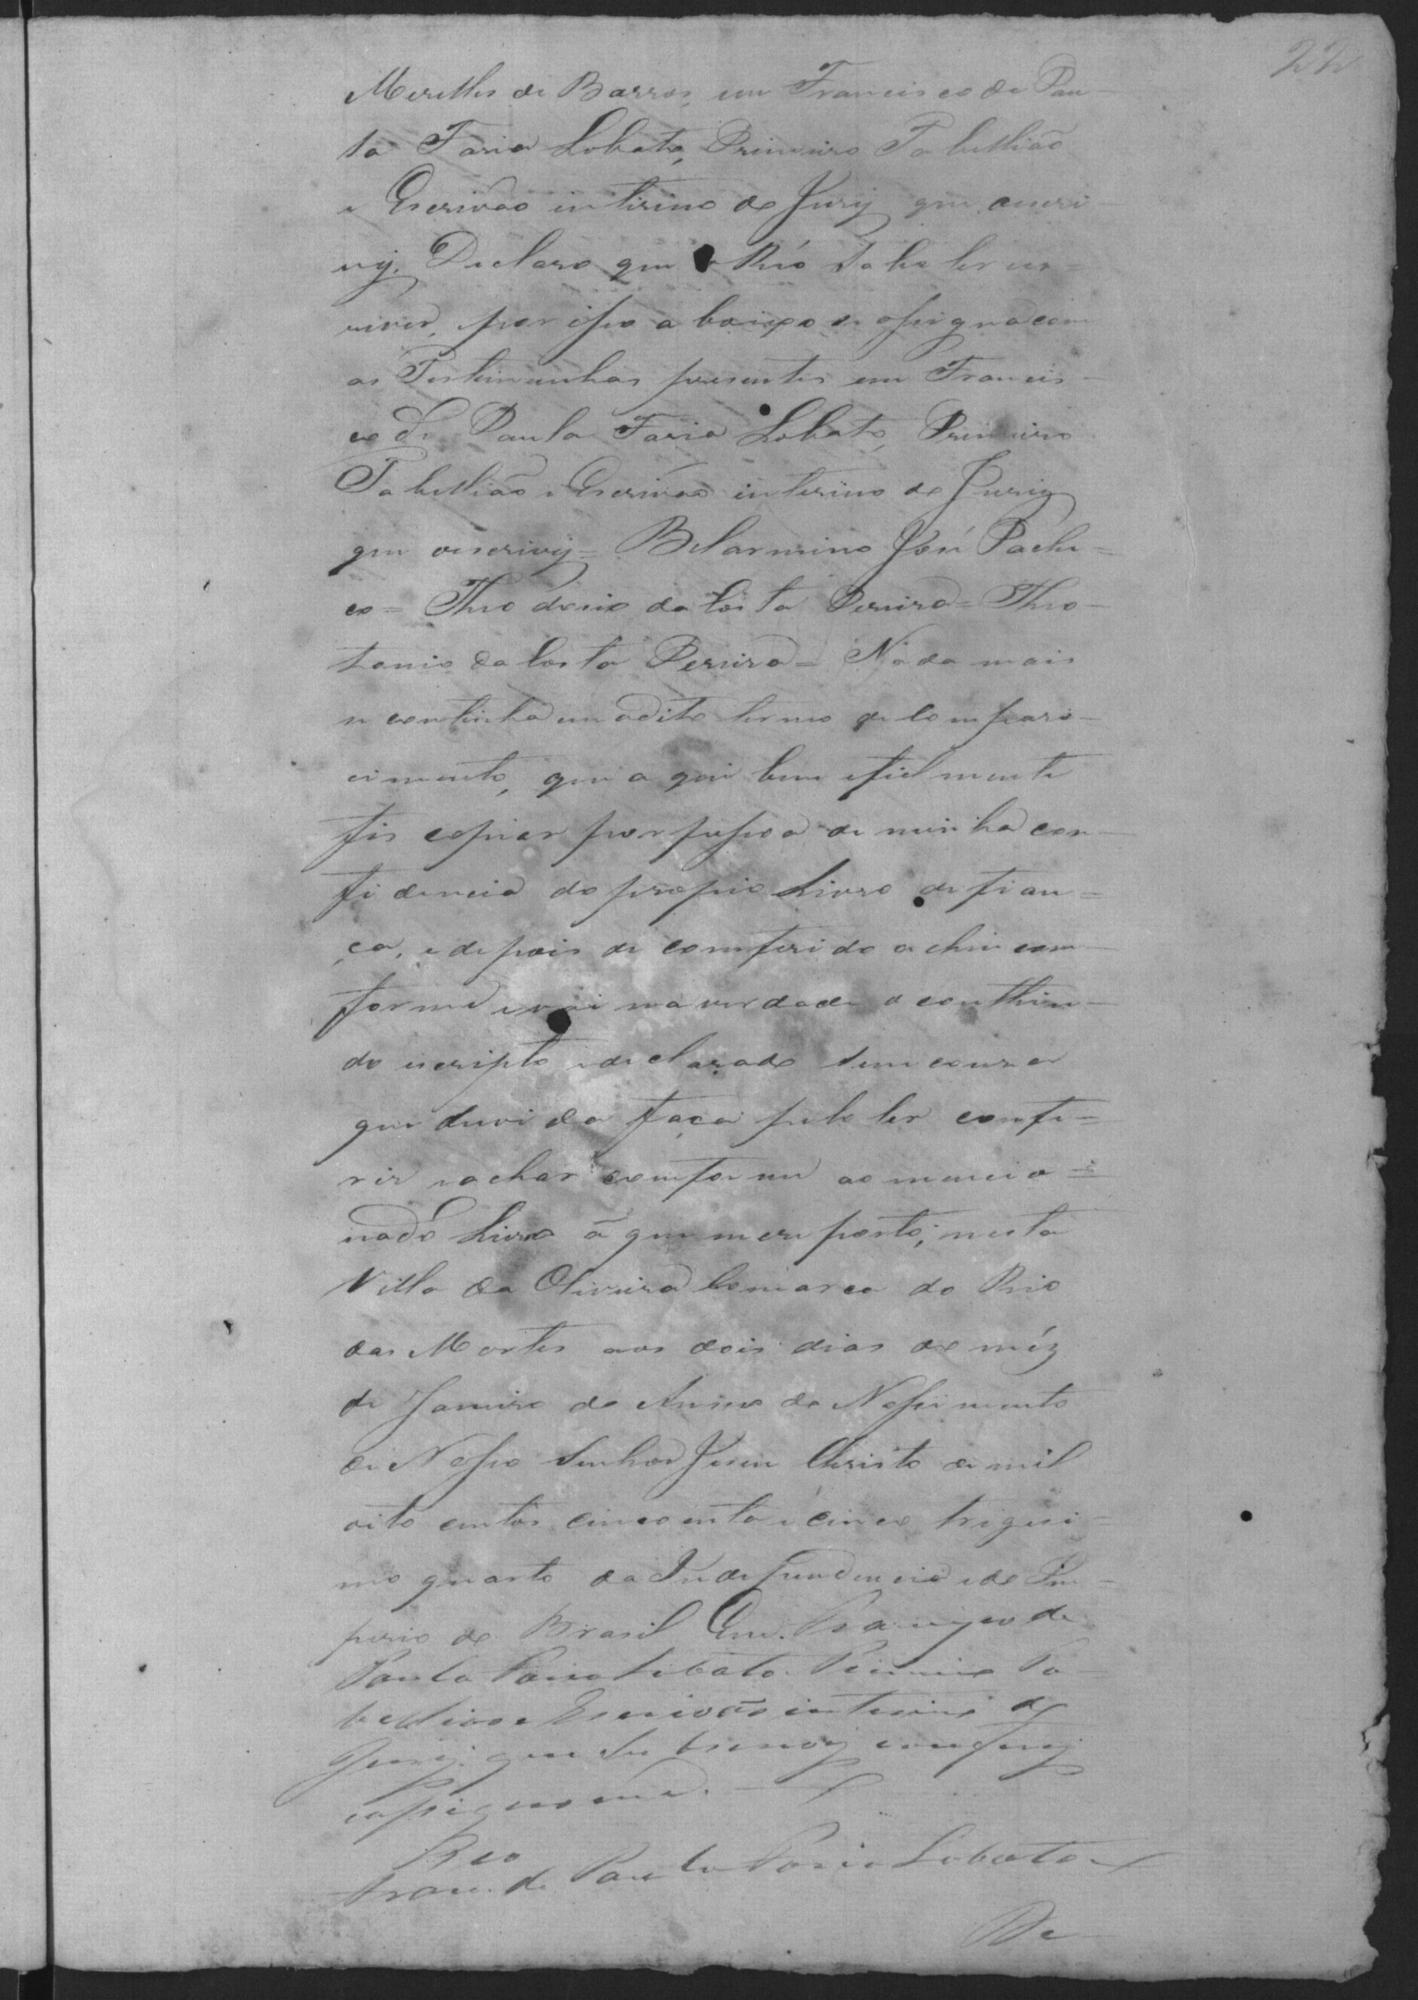 22
Meirelles de Barros, eu Francisco de Pau-
la Faria Lobato, Primeiro Tabellião
e Escrivão interino do Jury que escri-
vy. Declaro que o Réo sabe ler es-
crever, por isso abaixo se assigna com
as Testemunhas presentes eu Francis-
co de Paula Faria Lobato, Primeiro
Tabellião e Escrivão interino do Jury
que escrivy = Belarmino José Pache-
co = Theodosio da Costa Pereira = Theo-
tonio da Costa Pereira = Nada mais
se continha em o dito termo de Compare-
cimento, que aqui bem e fielmente
fis copiar por pessoa de minha con-
fidencia do proprio Livro de fian-
ça, e depois de comferido achei com-
forme e vai na verdade o conthiu-
do escripto e declarado sem couza
que duvida faça pelo ler comfe-
rir e achar comforme ao mencio-
nado Livro á que me reporto; nesta
Villa da Oliveira Comarca do Rio
das Mortes aos dois dias do mêz
de Janeiro do Anno do Nassimento
de Nosso Senhor Jesus Christo de mil
oito centos cincoenta e cinco trigesi-
mo quarto da Independencia e do Im-
perio do Brasil Eu. Francisco de
Paula Faria Lobato Primeiro Ta
bellião e Escrivão interino do
Jury que Sobscrevy comfery
e assigno me.
Franco. de Paula Faria Lobato
De